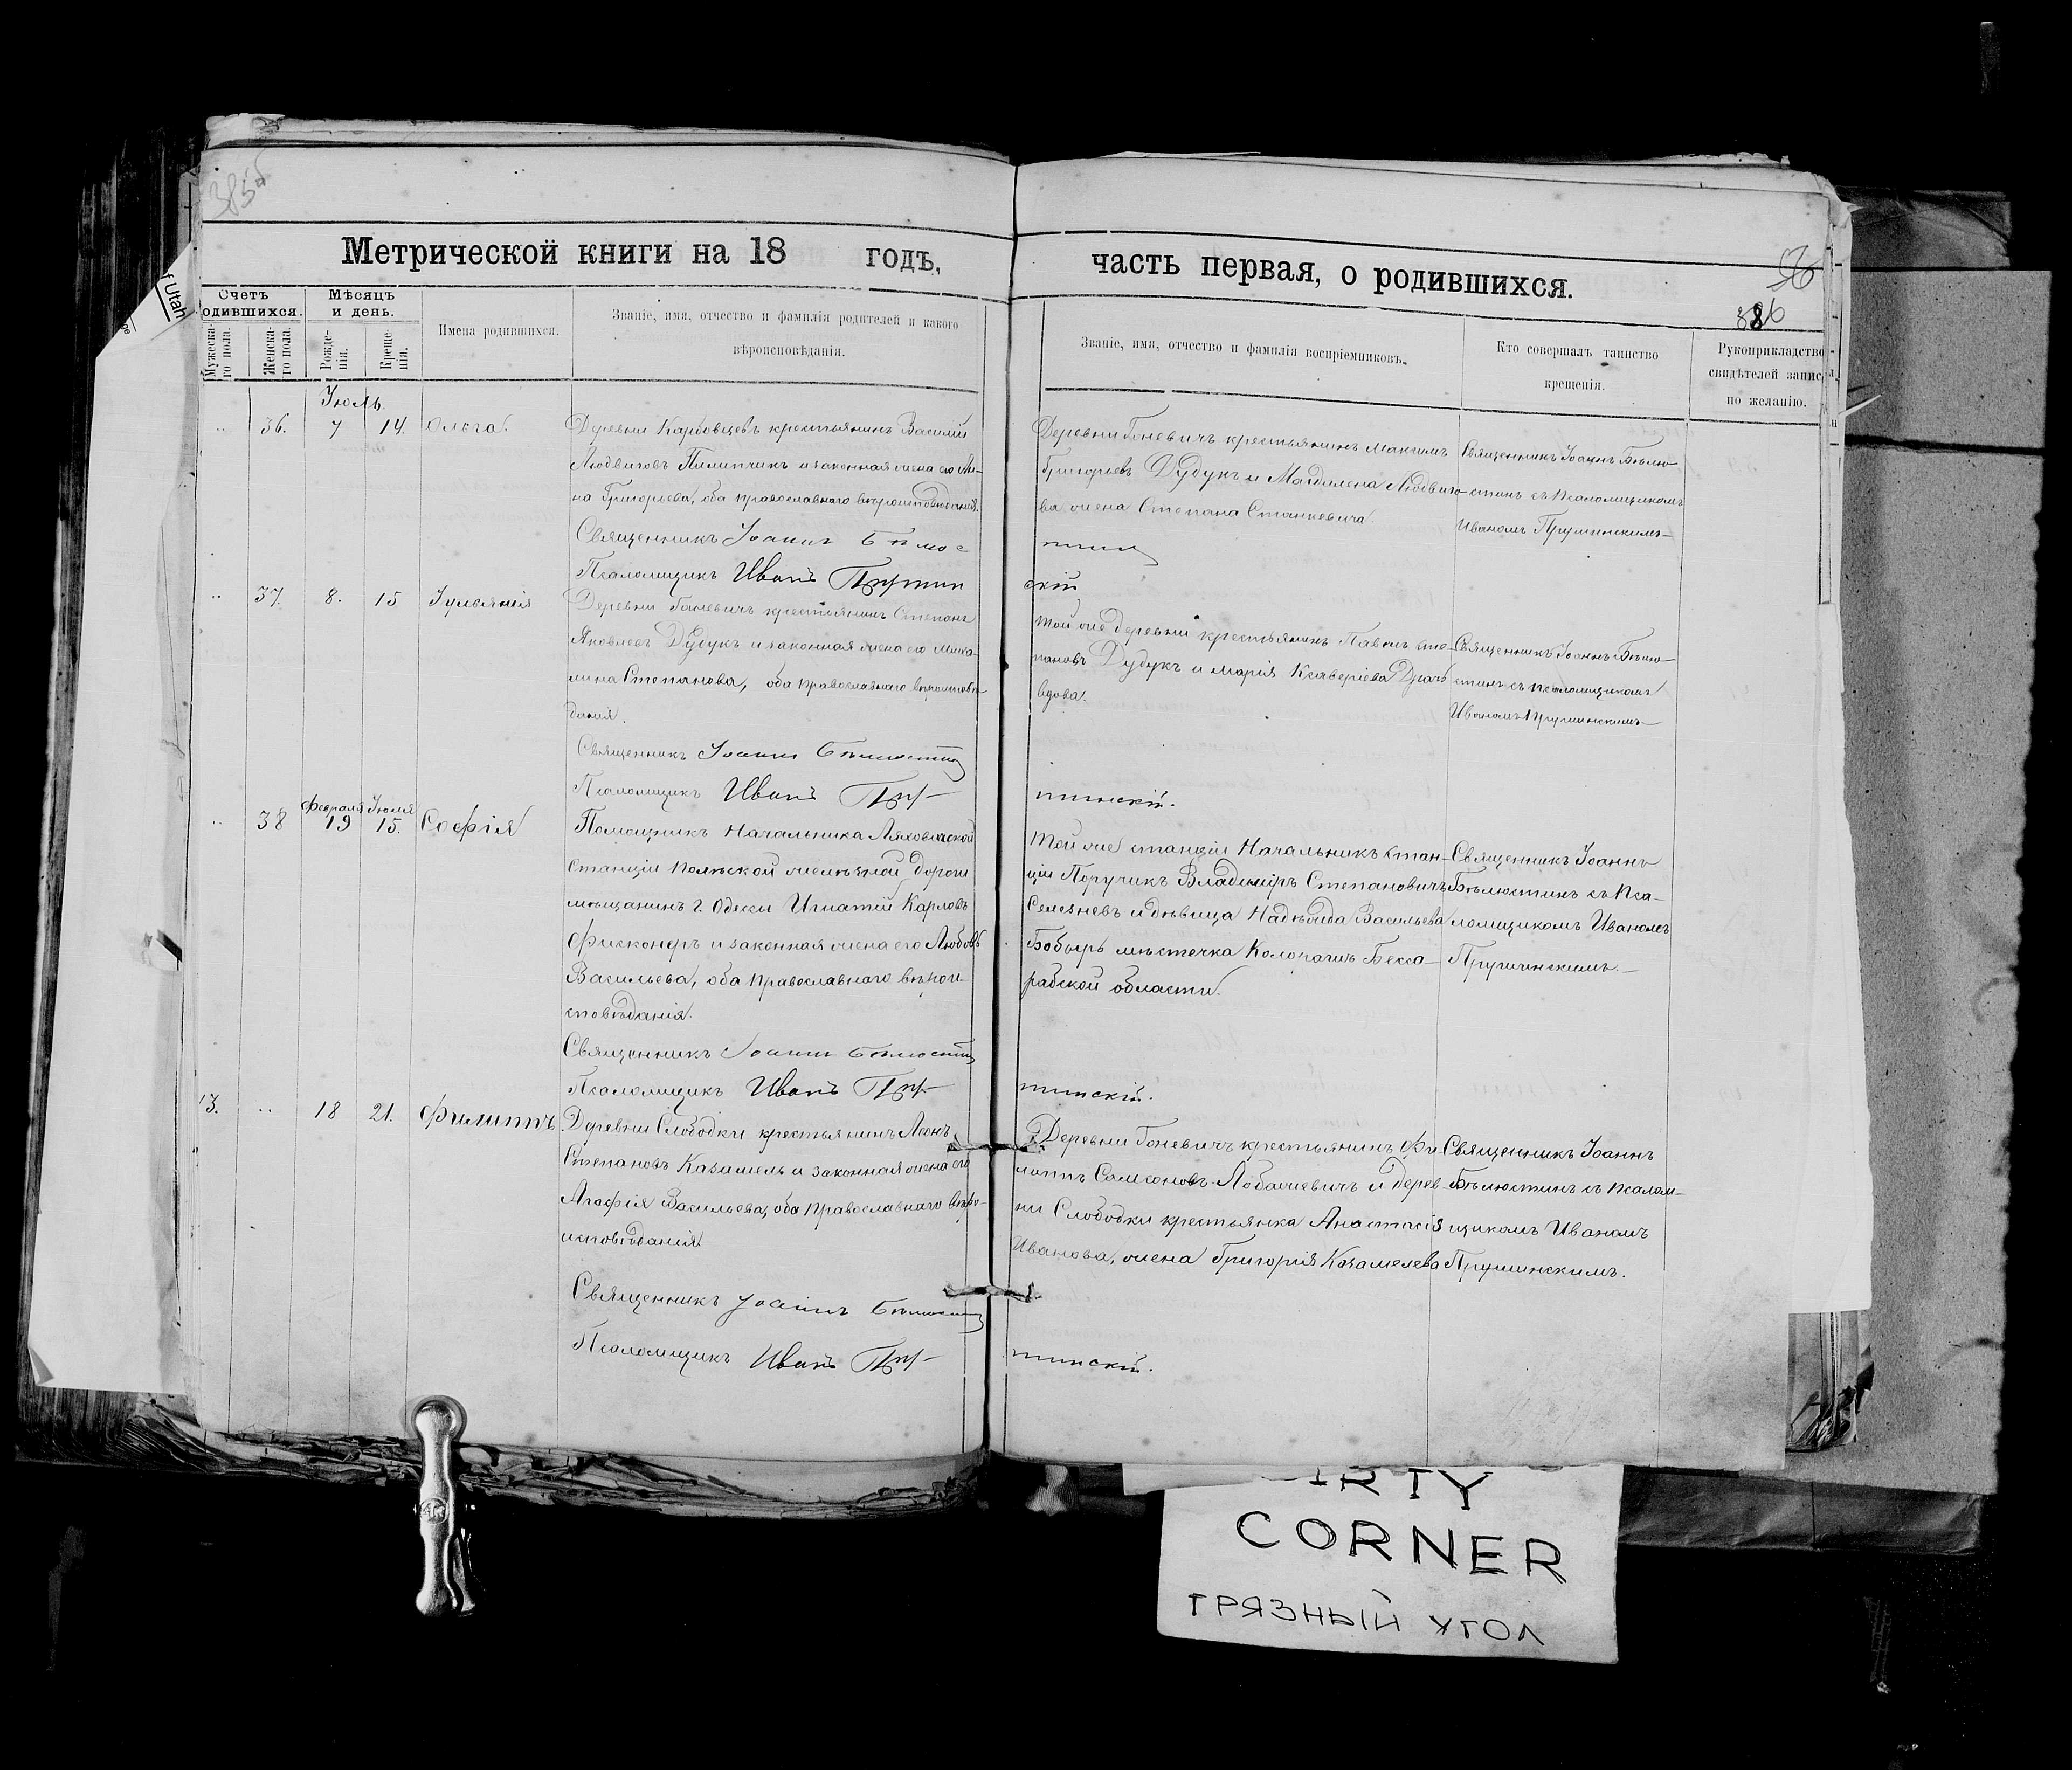 385
Метрической книги на 18 годъ,
часть первая, о родившихся.
56
386
Счетъ
одившихся.
Мѣсяцъ
и день.
Мужеска-
го пола.
Женска-
го пола.
Рожде-
нія.
Креще-
нія.
Имена родившихся.
Званіе, имя, отчество и фамилія родителей и какого
вѣроисповѣданія.
Званіе, имя, отчество и фамилія воспріемниковъ.
Кто совершалъ таинство
крещенія.
Рукоприкладство
свидѣтелей запис
по желанію.
Іюль.
36. 7 14. Ольга.
Деревни Карбовцевъ крестьянинъ Василій
Людвиговъ Пилипчикъ и законная жена его Ан-
на Григорьева, оба православнаго вѣроисповѣданія.
Священникъ Іоаннъ Бѣлюс
Псаломщикъ Иванъ Прушин
Деревни Гоневичъ крестьянинъ Максимъ
Григорьевъ Дудукъ и Магдалена Людвиго-
ва жена Степана Станкевича.
тинъ
скій
Священникъ Іоаннъ Бѣлю-
стинъ съ псаломщикомъ
Иваномъ Прушинскимъ-
37. 8. 15 Іуліанія
Деревни Гоневичъ крестьянинъ Степанъ
Яковлевъ Дудукъ и законная жена его Миха-
лина Степанова, оба православнаго вѣроисповѣ-
данія.
Священникъ Іоаннъ Бѣлюстинъ
Псаломщикъ Иванъ Пру-
Той же деревни крестьянинъ Павелъ Сте-
пановъ Дудукъ и Марія Ксаверіева Драчъ
вдова.
шинскій.
Священникъ Іоаннъ Бѣлю-
стинъ съ псаломщикомъ
Иваномъ Прушинскимъ-
Февраля Іюля
38 19 15. Софія
Помощникъ Начальника Ляховичской
станціи Полѣской желѣзной дороги
мѣщанинъ г. Одессы Игнатій Карловъ
Фисконеръ и законная жена его Любовь
Васильева, оба православнаго вѣрои-
сповѣданія.
Священникъ Іоаннъ Бѣлюстинъ
Псаломщикъ Иванъ Пру-
Той же станціи Начальникъ Стан-
ціи Поручикъ Владиміръ Степановичъ
Селезневъ и дѣвица Надежда Васильева
Бобырь мѣстечка Бесса-
рабской области.
шинскій.
Священникъ Іоаннъ
Бѣлюстинъ съ Пса-
ломщикомъ Иваномъ
Прушинскимъ.-
13. 18 21. Филиппъ.
Деревни Слободки крестьянинъ Леонъ
Степановъ Казамель и законная жена его
Агафія Васильева, оба православнаго вѣро-
исповѣданія.
Священникъ Іоаннъ Бѣлюстинъ
Псаломщикъ Иванъ Пру-
Деревни Гоневичъ крестьянинъ Фи-
липпъ Самсоновъ Лобашевичъ и Дерев-
ни Слободки крестьянка Анастасія
Иванова, жена Григорія Казамелева
шинскій.
Священникъ Іоаннъ
Бѣлюстинъ съ псалом-
щикомъ Иваномъ
Прушинскимъ.
f Utah
DIRTY
CORNER
ГРЯЗНЫЙ УГОЛ